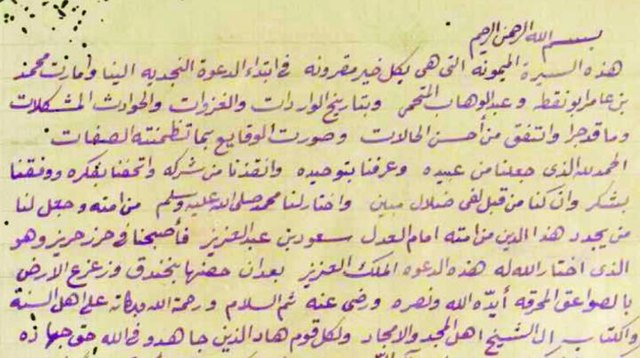 بسم الله الرحمن الرحيم
هذه السيرة الميمونه التى هي بكل خير مقرونه في ابتداء الدعوة النجديه الينا وامارت محمد
بن عامر ابو نقطه وعبد الوهاب المتحمى وبتاريخ الواردات والغزوات والحوادث المشكلات
وما قد جرا واتفق من أحسن الحالات وصورت الوقايع بما تظمنته الصفات
الحمد لله الذى جعلنا من عبيده وعرفنا بتوحيده وانقذنا من شركه واتحفنا بفكره ووفقنا
بشكر وان كنا من قبل لفى ضلال مبين واختار لنا محمد صلى الله عليه وسلم من امته وجعل لنا
من يجدد هذا الدين من امته امام العدل سعود بن عبد العزيز فأصبحنا في حرز حريز وهو
الذى اختار الله له هذه الدعوه الملك العزيز بعد ان حصنها بخندق وزعزع الارض
بالصواعق المحرقه أيده الله ونصره ورضى عنه ثم السلام ورحمة الله وبركاته على اهل السنة
واكتاب ال الشيخ اهل المجد والامجاد ولكل قوم هاد الذين جاهدو في الله حق جهاده